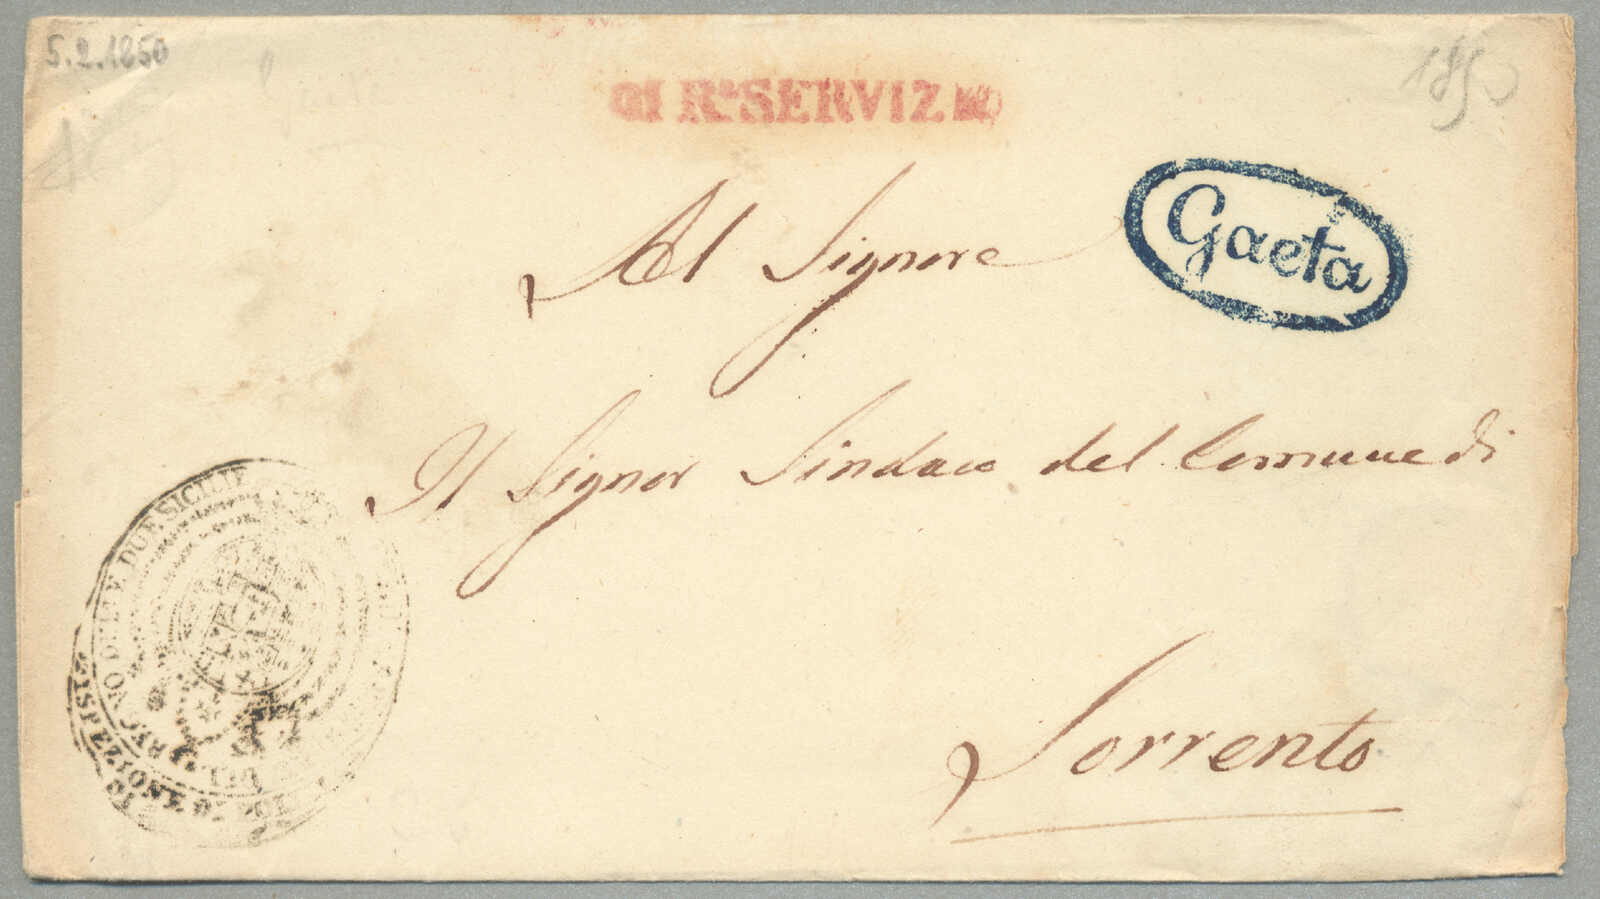 5.2.1850
1850
DI Rl. SERVIZIO
Gaeta
Al Signore
Il Signor Sindaco del Comune di
Sorrento
REGNO DELLE DUE SICILIE